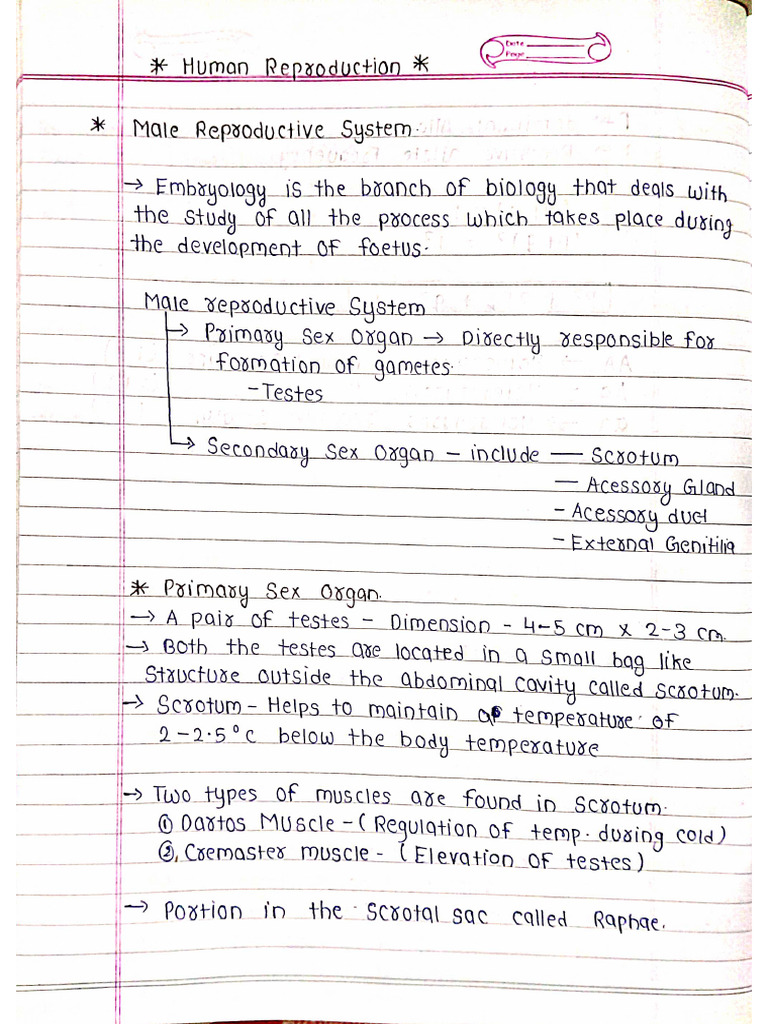 Date
Page
* Human Reproduction *
* Male Reproductive System.
→ Embryology is the branch of biology that deals with
the study of all the process which takes place during
the development of foetus.
Male reproductive System
→ Primary Sex Organ → Directly responsible for
formation of gametes.
- Testes
→ Secondary Sex Organ - include — Scrotum
— Acessory Gland
- Acessory duct
- External Genitilia
* Primary Sex Organ.
→ A pair of testes - Dimension - 4-5 cm x 2-3 cm.
→ Both the testes are located in a small bag like
Structure outside the abdominal cavity called scrotum.
→ Scrotum - Helps to maintain a temperature of
2-2.5°c below the body temperature
→ Two types of muscles are found in Scrotum.
① Dartos Muscle - (Regulation of temp. during cold)
②, Cremaster muscle - (Elevation of testes)
→ Portion in the scrotal sac called Raphae.